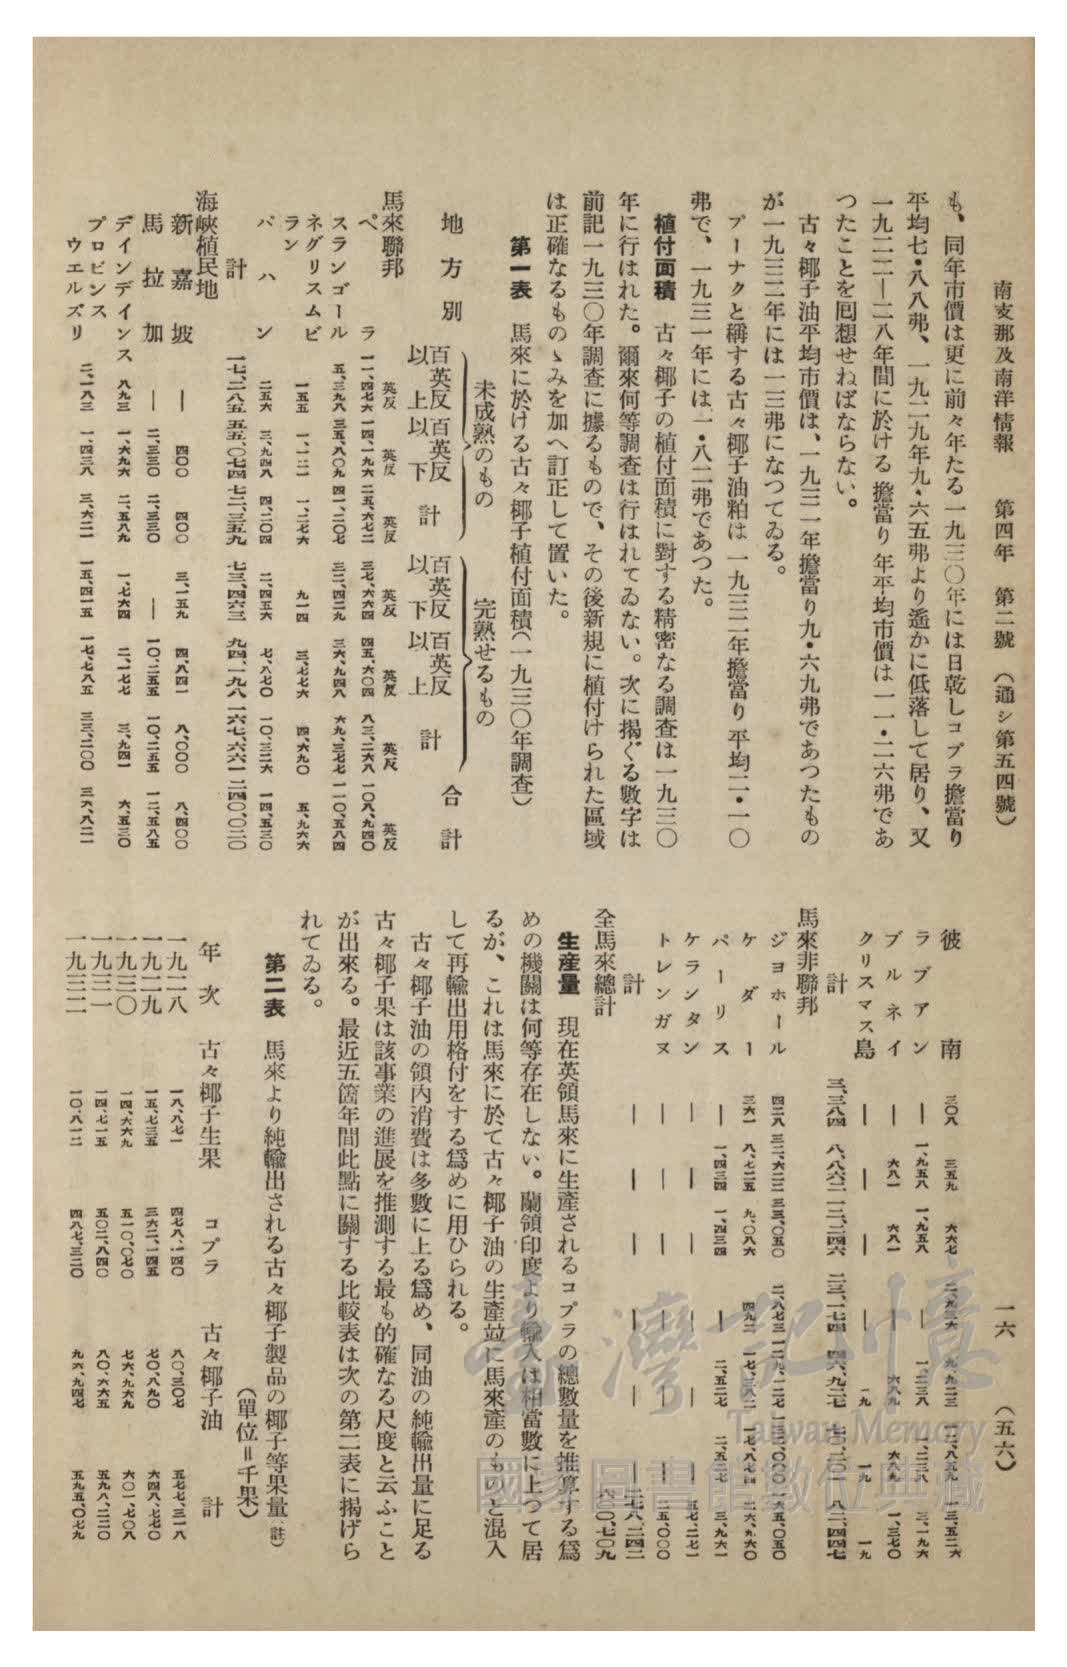 南支那及南洋情報　第四年　第二號　（通シ第五四號）　一六　（五六）
も、同年市價は更に前々年たる一九三〇年には日乾しコプラ擔當り
平均七・八八弗、一九二九年九・六五弗より遙かに低落して居り、又
一九二二―二八年間に於ける擔當り年平均市價は一一・二六弗であ
つたことを囘想せねばならない。
古々椰子油平均市價は、一九三一年擔當り九・六九弗であつたもの
が一九三二年には一三弗になつてゐる。
プーナクと稱する古々椰子油粕は一九三二年擔當り平均二・一〇
弗で、一九三一年には一・八二弗であつた。
植付面積　古々椰子の植付面積に對する精密なる調査は一九三〇
年に行はれた。爾來何等調査は行はれてゐない。次に揭ぐる數字は
前記一九三〇年調査に據るもので、その後新規に植付けられた區域
は正確なるものゝみを加へ訂正して置いた。
第一表　馬來に於ける古々椰子植付面積（一九三〇年調査）
地方別　未成熟のもの　完熟せるもの　合計
百英反以上　百英反以下　計　百英反以下　百英反以上　計
馬來聯邦　英反　英反　英反　英反　英反　英反　英反
ペラ　一一、四七六　一四、一九六　二五、六七二　三七、六六四　四五、六〇四　八三、二六八　一〇八、九四〇
スランゴール　五、三九八　三五、八〇九　四一、二〇七　三二、四二九　三六、九四八　六九、三七七　一一〇、五八四
ネグリスムビラン　一五五　一、一二一　一、二七六　九一四　三、七七六　四、六九〇　五、九六六
パハン　二五六　三、九四八　四、二〇四　二、四五六　七、八七〇　一〇、三二六　一四、五三〇
計　一七、二八五　五五、〇七四　七二、三五九　七三、四六三　九四、一九八　一六七、六六一　二四〇、〇二〇
海峽植民地
新嘉坡　―　四〇〇　四〇〇　三、一五九　四、八四一　八、〇〇〇　八、四〇〇
馬拉加　―　二、三三〇　二、三三〇　―　一〇、二五五　一〇、二五五　一二、五八五
デインデインス　八九三　一、六九六　二、五八九　一、七六四　二、一七七　三、九四一　六、五三〇
プロビンスウエルズリ　二、一八三　一、四三八　三、六二一　一五、四一五　一七、七八五　三三、二〇〇　三六、八二一
彼南　三〇八　三五九　六六七　二、九三六　九、九二三　一二、八五九　一三、五二六
ラブアン　―　一、九五八　一、九五八　―　一、二三八　一、二三八　三、一九六
ブルネイ　―　六八一　六八一　―　六八九　六八九　一、三七〇
クリスマス島　―　―　―　―　一九　一九　一九
計　三、三八四　八、八六二　一二、二四六　二三、二七四　四六、九二七　七〇、二〇一　八二、四四七
馬來非聯邦
ジヨホール　四二八　三二、六二二　三三、〇五〇　二、八七三　一二九、一二七　一三二、〇〇〇　一六五、〇五〇
ケダー　三六一　八、七二五　九、〇八六　四九二　一七、三八二　一七、八七四　二六、九六〇
パーリス　―　一、四三四　一、四三四　―　二、五二七　二、五二七　三、九六一
ケランタン　―　―　―　―　―　―　五七、二七一
トレンガヌ　―　―　―　―　―　―　二五、〇〇〇
計　―　―　―　―　―　―　二七八、二四二
全馬來總計　六〇〇、七〇九
生産量　現在英領馬來に生產されるコプラの總數量を推算する爲
めの機關は何等存在しない。蘭領印度より輸入は相當數に上つて居
るが、これは馬來に於て古々椰子油の生產竝に馬來產のものと混入
して再輸出用格付をする爲めに用ひられる。
古々椰子油の領內消費は多數に上る爲め、同油の純輸出量に足る
古々椰子果は該事業の進展を推測する最も的確なる尺度と云ふこと
が出來る。最近五箇年間此點に關する比較表は次の第二表に揭げら
れてゐる。
第二表　馬來より純輸出される古々椰子製品の椰子等果量（註）
（單位＝千果）
年次　古々椰子生果　コプラ　古々椰子油　計
一九二八　一八、八七一　四七八、一四〇　八〇、三〇七　五七七、三一八
一九二九　一五、七三五　三六二、一四五　七〇、八九〇　四四八、七七〇
一九三〇　一四、六六九　五一〇、〇七〇　七六、九六九　六〇一、七〇八
一九三一　一四、七一五　五〇二、八四〇　八〇、六六五　五九八、二二〇
一九三二　一〇、八一二　四八七、三二〇　九六、九四七　五九五、〇七九
臺灣記憶
Taiwan Memory
國家圖書館數位典藏